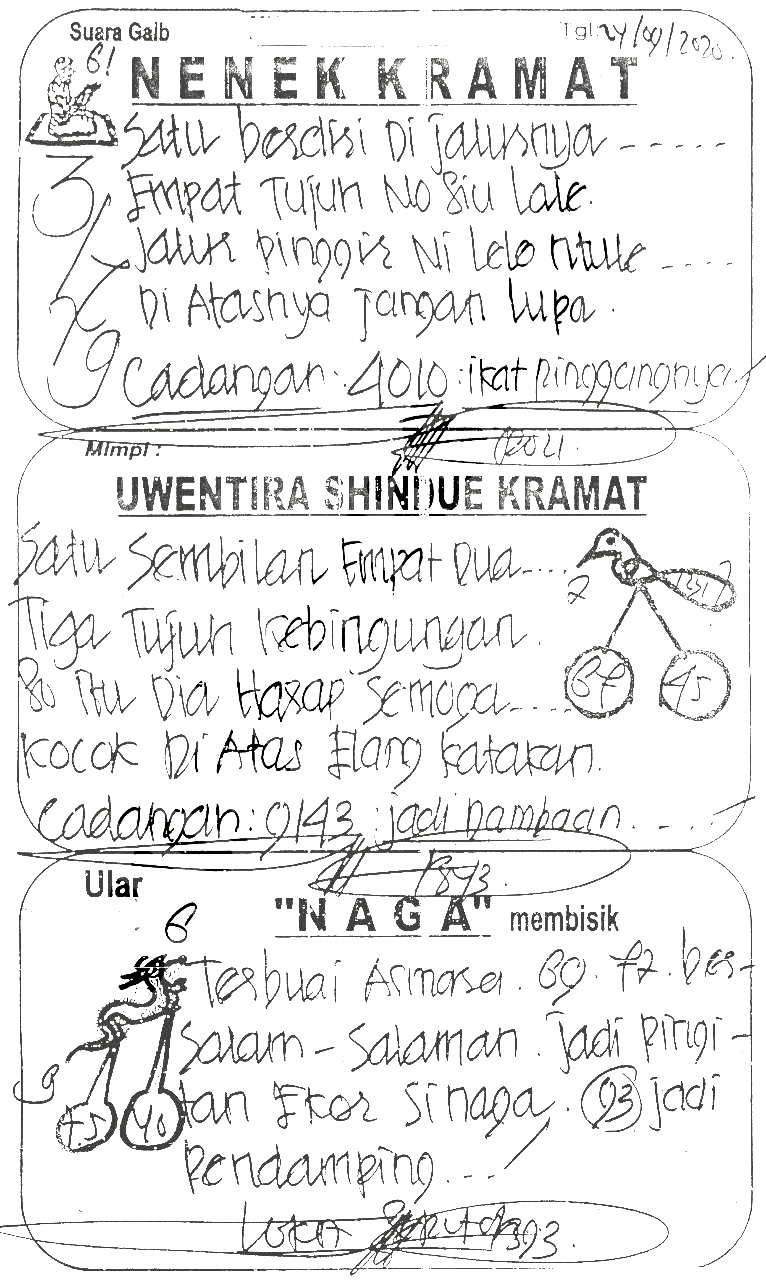 Suara Gaib
Tgl: 24/09/2020.
6!
NENEK KRAMAT
Satu berdiri Di jalurnya -----
3/
Empat Tujuh No Siu Lale.
Jalur pinggir Ni Lelo ntule ----
Di Atasnya jangan lupa.
9
Cadangan: 4010: ikat pinggangnya
Mimpi :
UWENTIRA SHINDUE KRAMAT
Satu Sembilan Empat Dua....
2
Tiga Tujuh kebingungan.
80 itu Dia Harap semoga....
67 45
kocok Di Atas Elang katakan.
Cadangan: 9143: jadi Dambaan....
1893.
Ular
"NAGA" membisik
6
Terbuai Asmara. 69. 72. ber-
Salam-Salaman. jadi pingi-
9
75 40
tan Ekor Si naga. 93 jadi
pendamping...